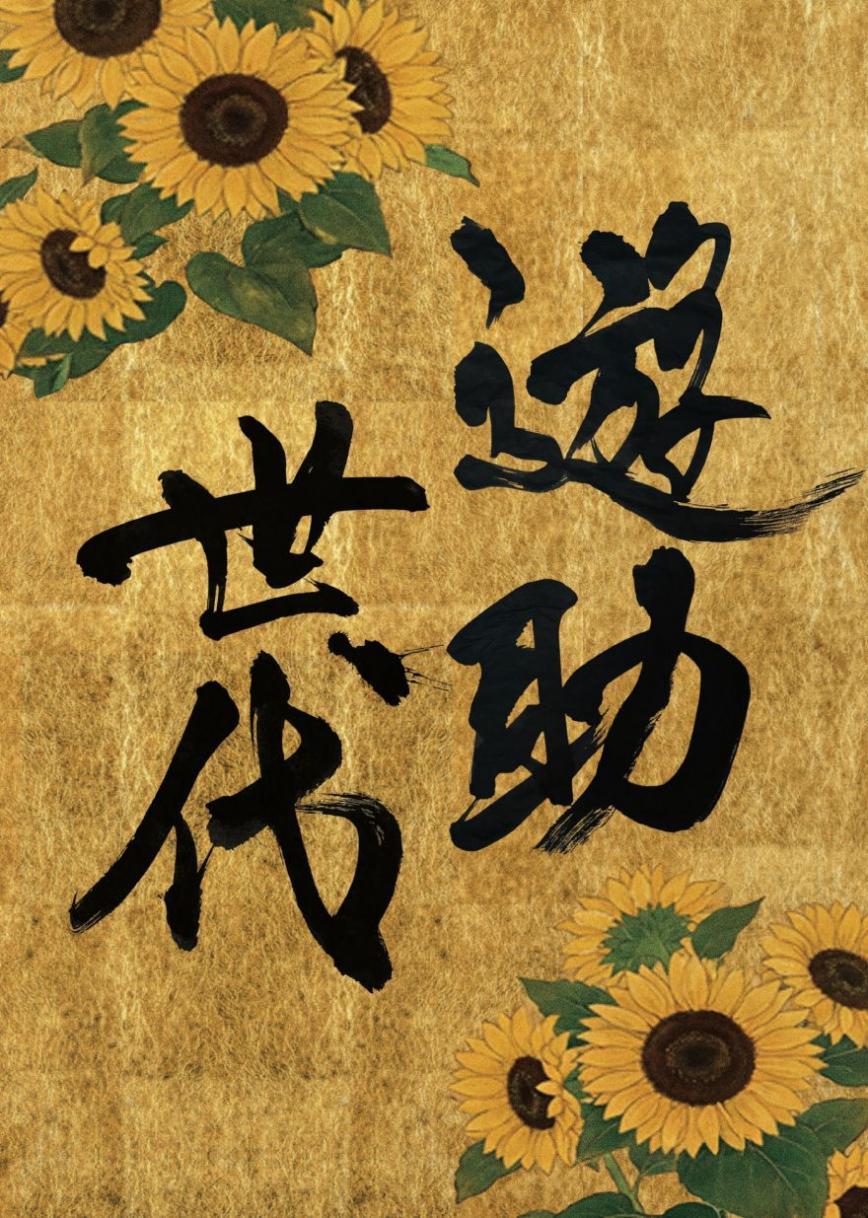 遊助
世代